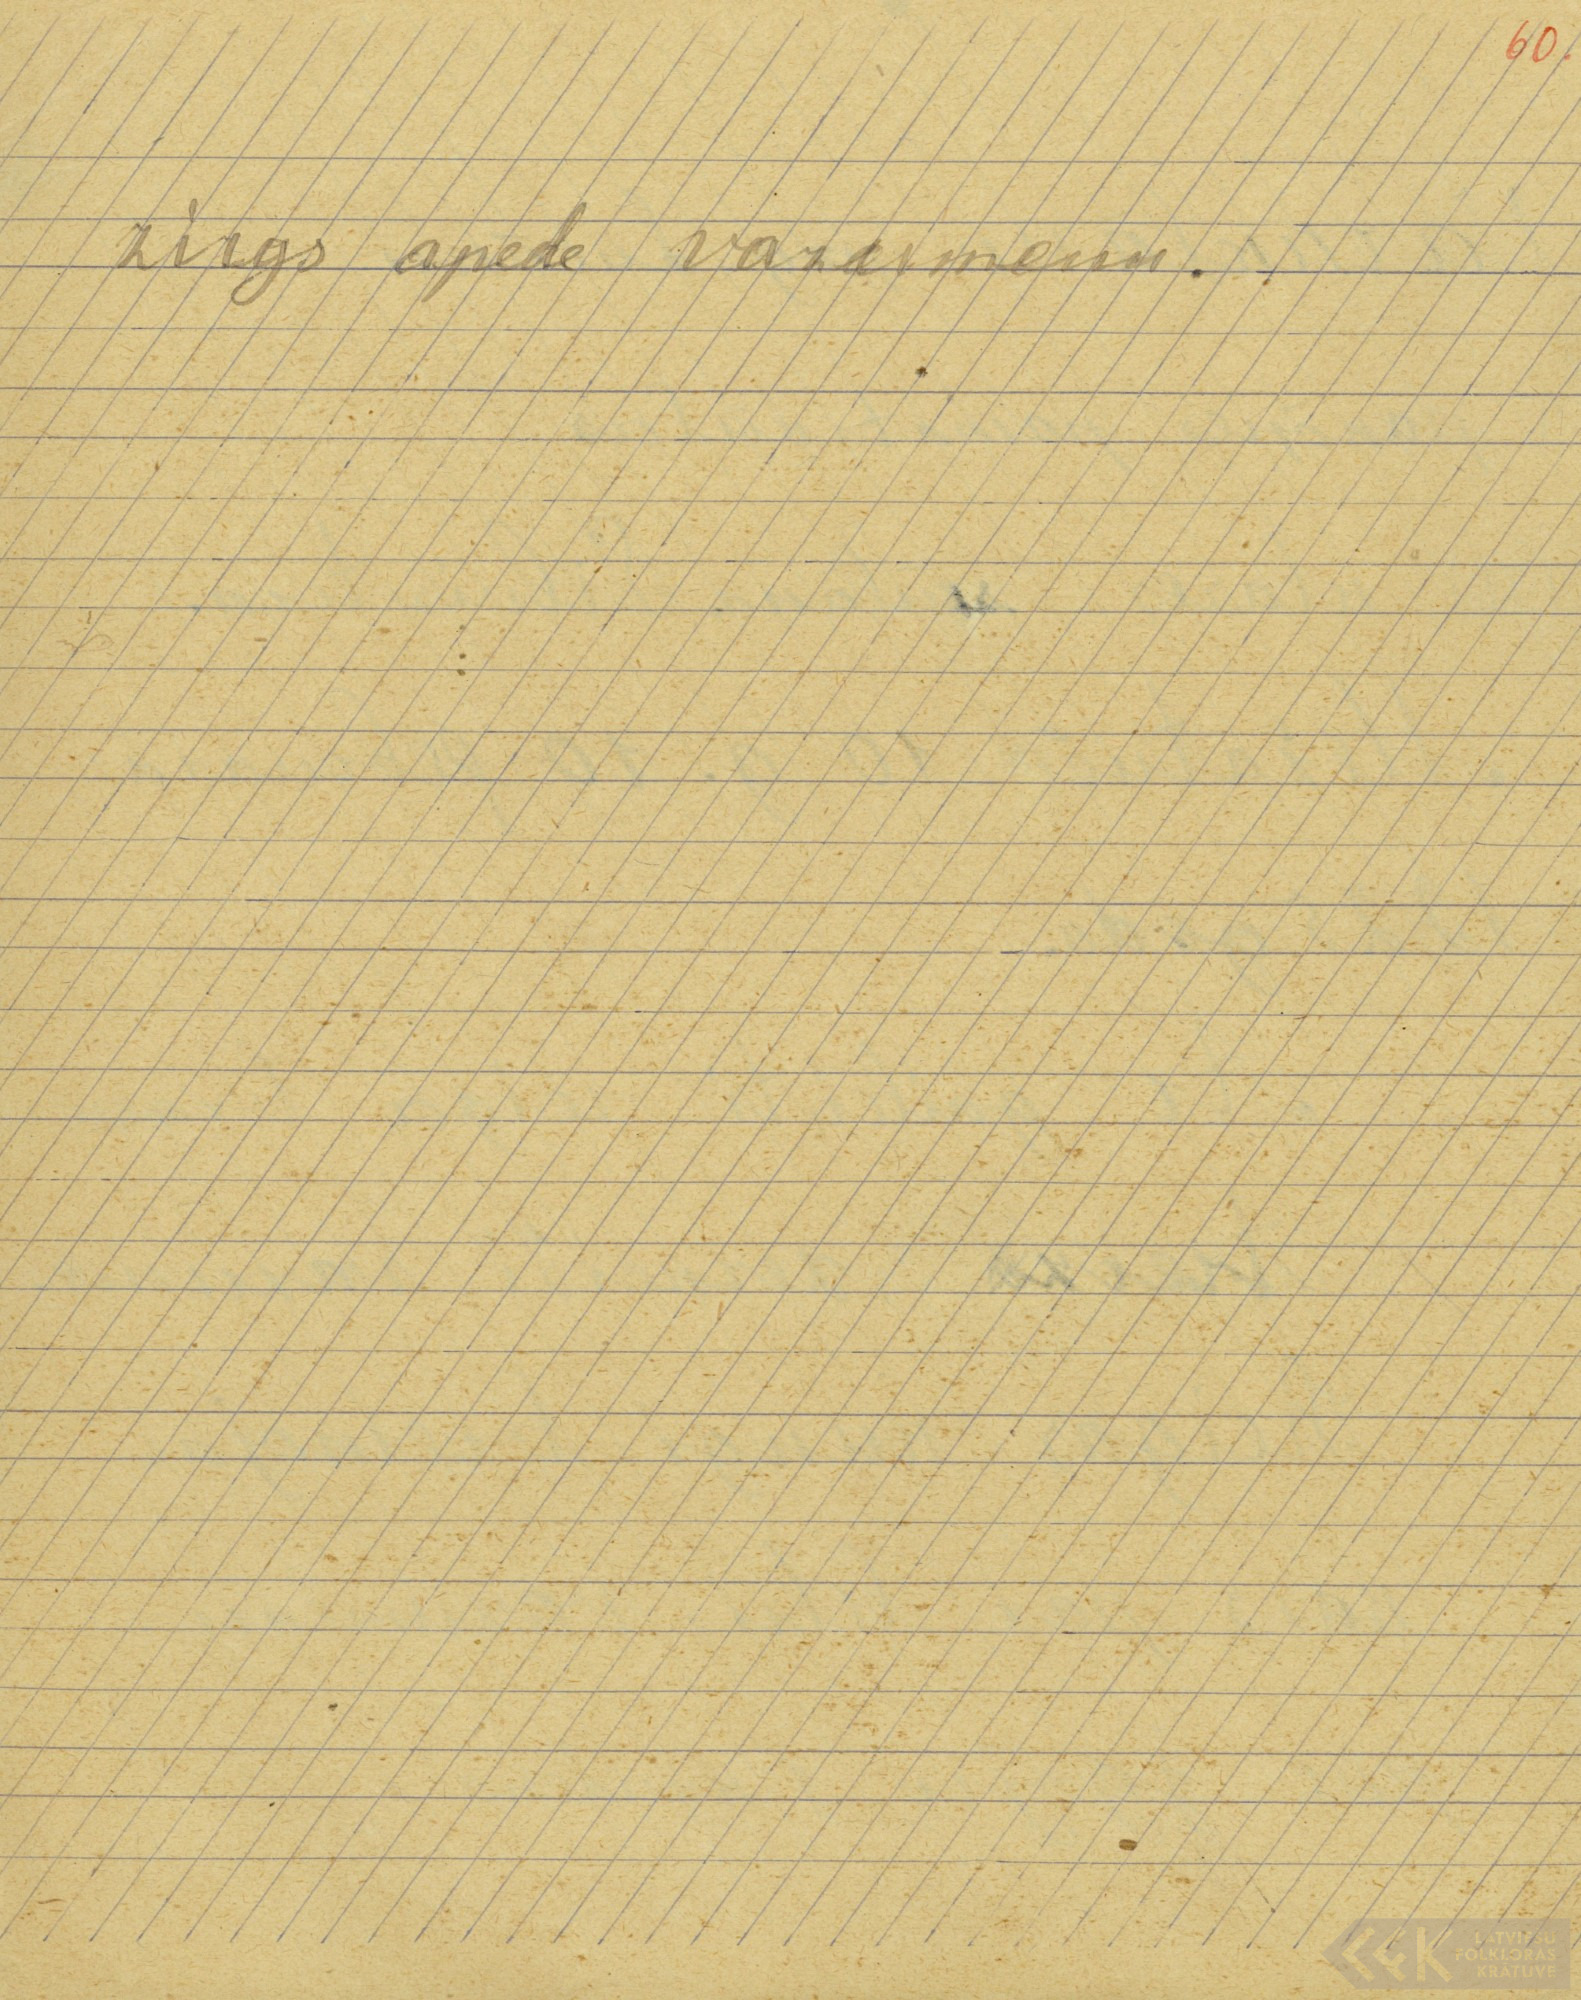 60.
zirgs apede vazarmenn.
LATVIEŠU
FOLKLORAS
KRĀTUVE